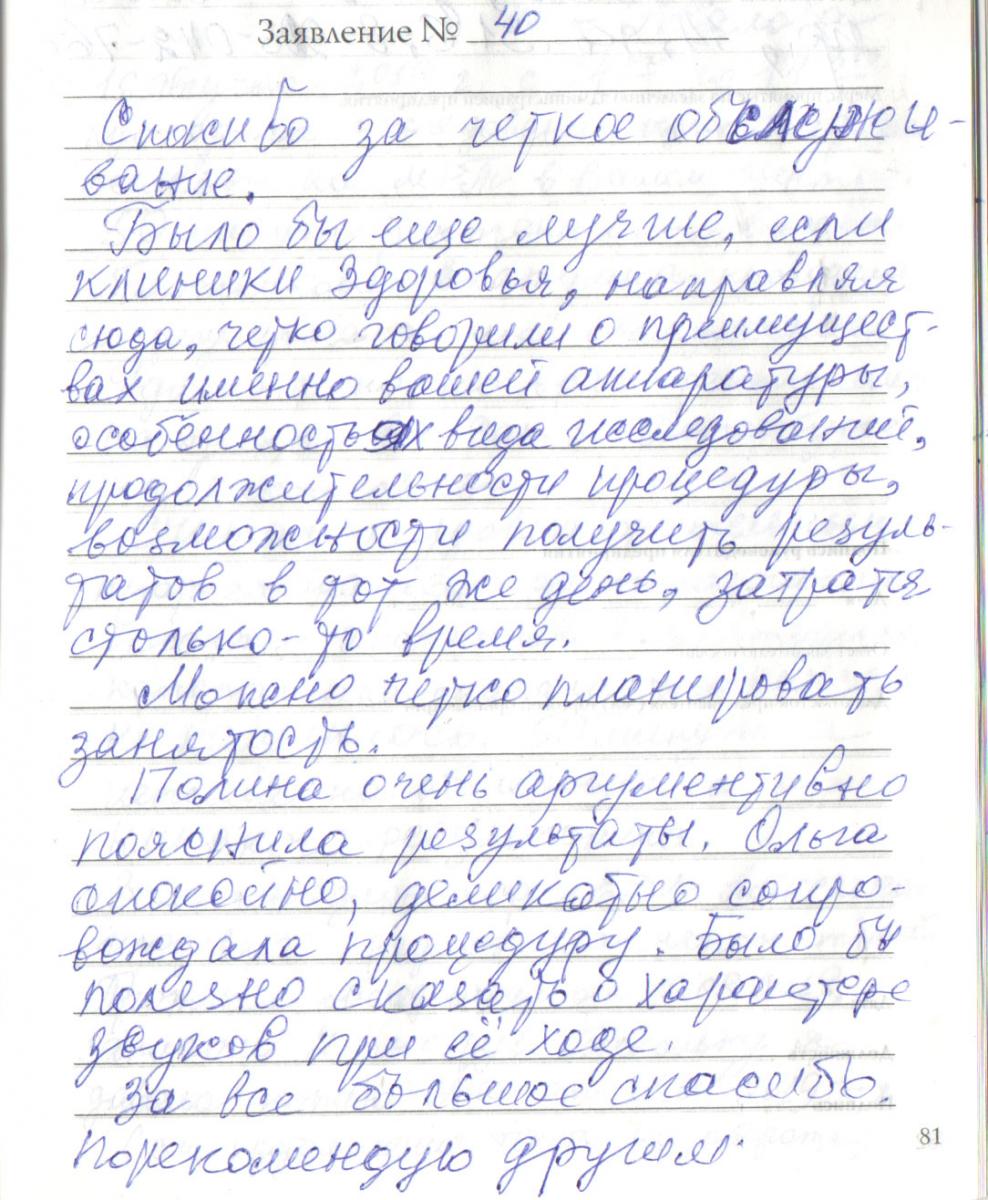 Заявление № 40
Спасибо за четкое обслужи-
вание.
Было бы еще лучше, если
клиники Здоровья, направляя
сюда, четко говорили о преимущест-
вах именно вашей аппаратуры,
особенностях вида исследований,
продолжительности процедуры,
возможности получить резуль-
татов в тот же день, затратя
столько-то время.
Можно четко планировать
занятость.
Полина очень аргументивно
пояснила результаты. Ольга
спокойно, деликатно сопро-
вождала процедуру. Было бы
полезно сказать о характере
звуков при её ходе.
За все большое спасибо
Порекомендую другим.
81